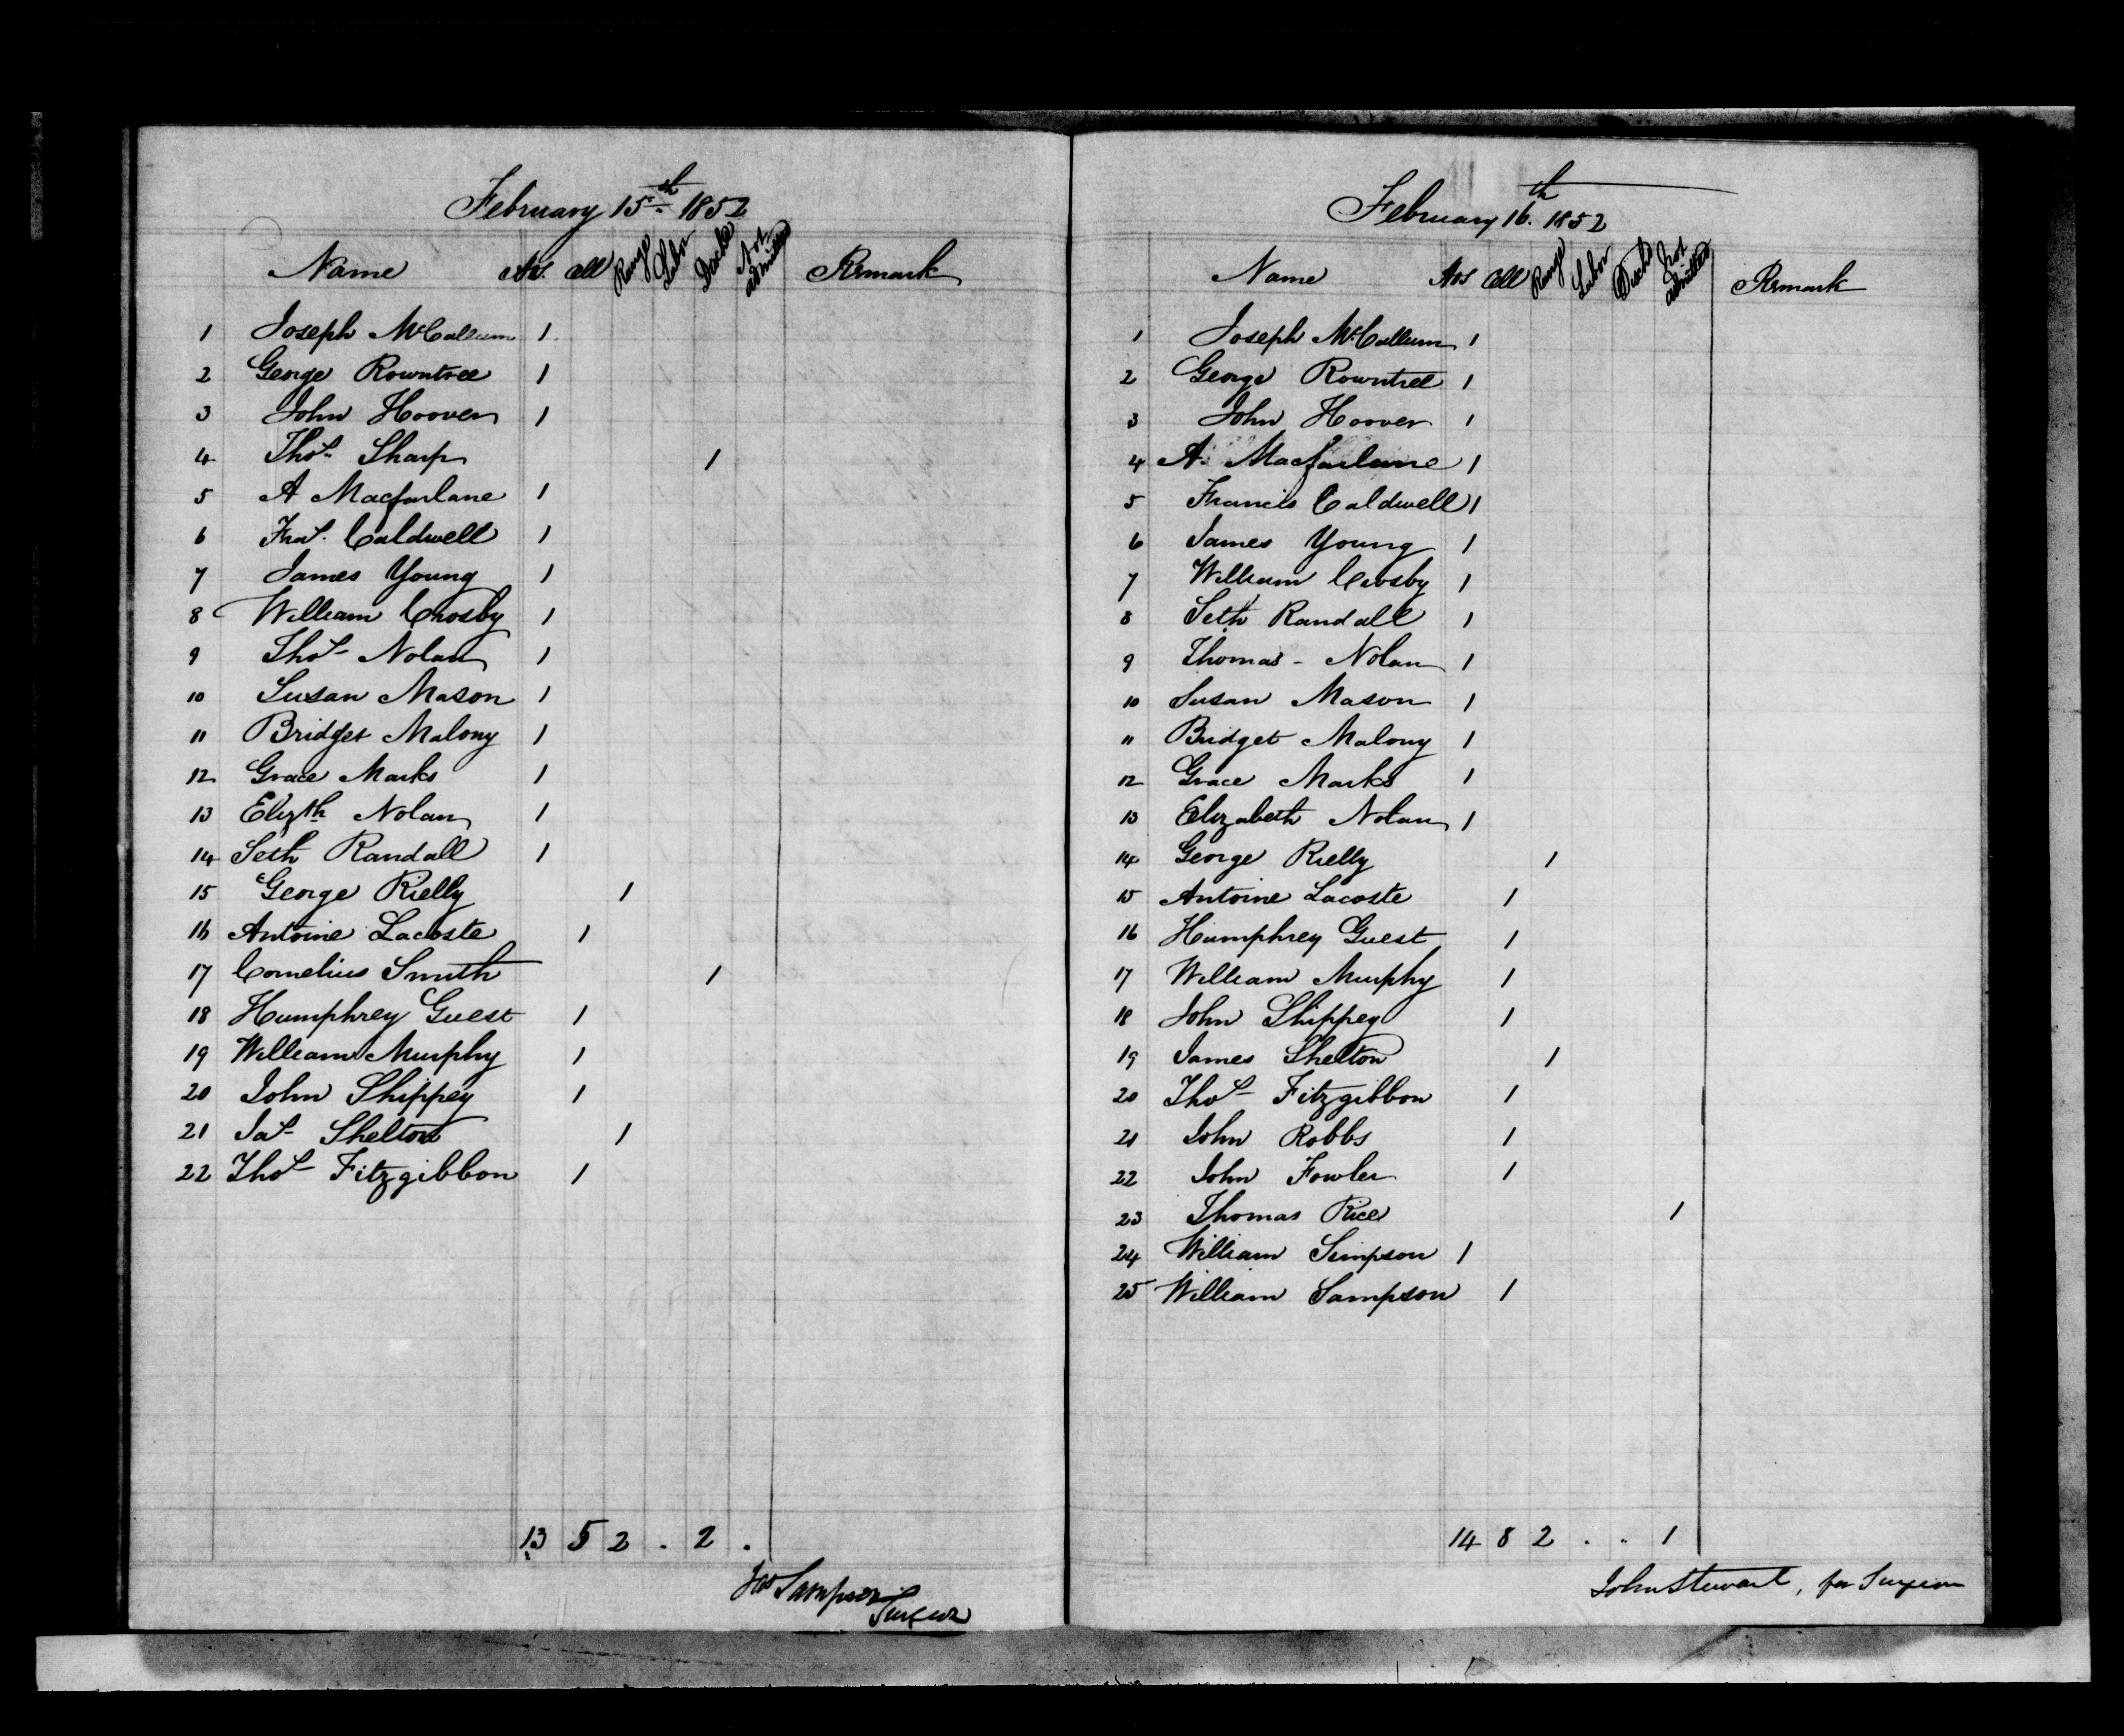 February 15th 1852
Name Hos. Cell Range Labor Docked Not admitted Remark
1 Joseph McCallum 1
2 George Rowntree 1
3 John Hoover 1
4 Thos. Sharp 1
5 A Macfarlane 1
6 Fras. Caldwell 1
7 James Young 1
8 William Crosby 1
9 Thos Nolan 1
10 Susan Mason 1
11 Bridget Malony 1
12 Grace Marks 1
13 Elizth Nolan 1
14 Seth Randall 1
15 George Rielly 1
16 Antoine Lacoste 1
17 Cornelius Smith 1
18 Humphrey Guest 1
19 William Murphy 1
20 John Shippey 1
21 Jas Shelton 1
22 Thos Fitzgibbon 1
13 5 2 . 2 .
Jas Sampson Surgeon
February 16th 1852
Name Hos Cell Range Labor Docked Not admitted Remark
1 Joseph McCallum 1
2 George Rowntree 1
3 John Hoover 1
4 A. Macfarlane 1
5 Francis Caldwell 1
6 James Young 1
7 William Crosby 1
8 Seth Randall 1
9 Thomas - Nolan 1
10 Susan Mason 1
11 Bridget Malony 1
12 Grace Marks 1
13 Elizabeth Nolan 1
14 George Rielly 1
15 Antoine Lacoste 1
16 Humphrey Guest 1
17 William Murphy 1
18 John Shippey 1
19 James Shelton 1
20 Thos Fitzgibbon 1
21 John Robbs 1
22 John Fowler 1
23 Thomas Rice 1
24 William Simpson 1
25 William Sampson 1
14 8 2 . . 1
John Stewart, for Surgeon